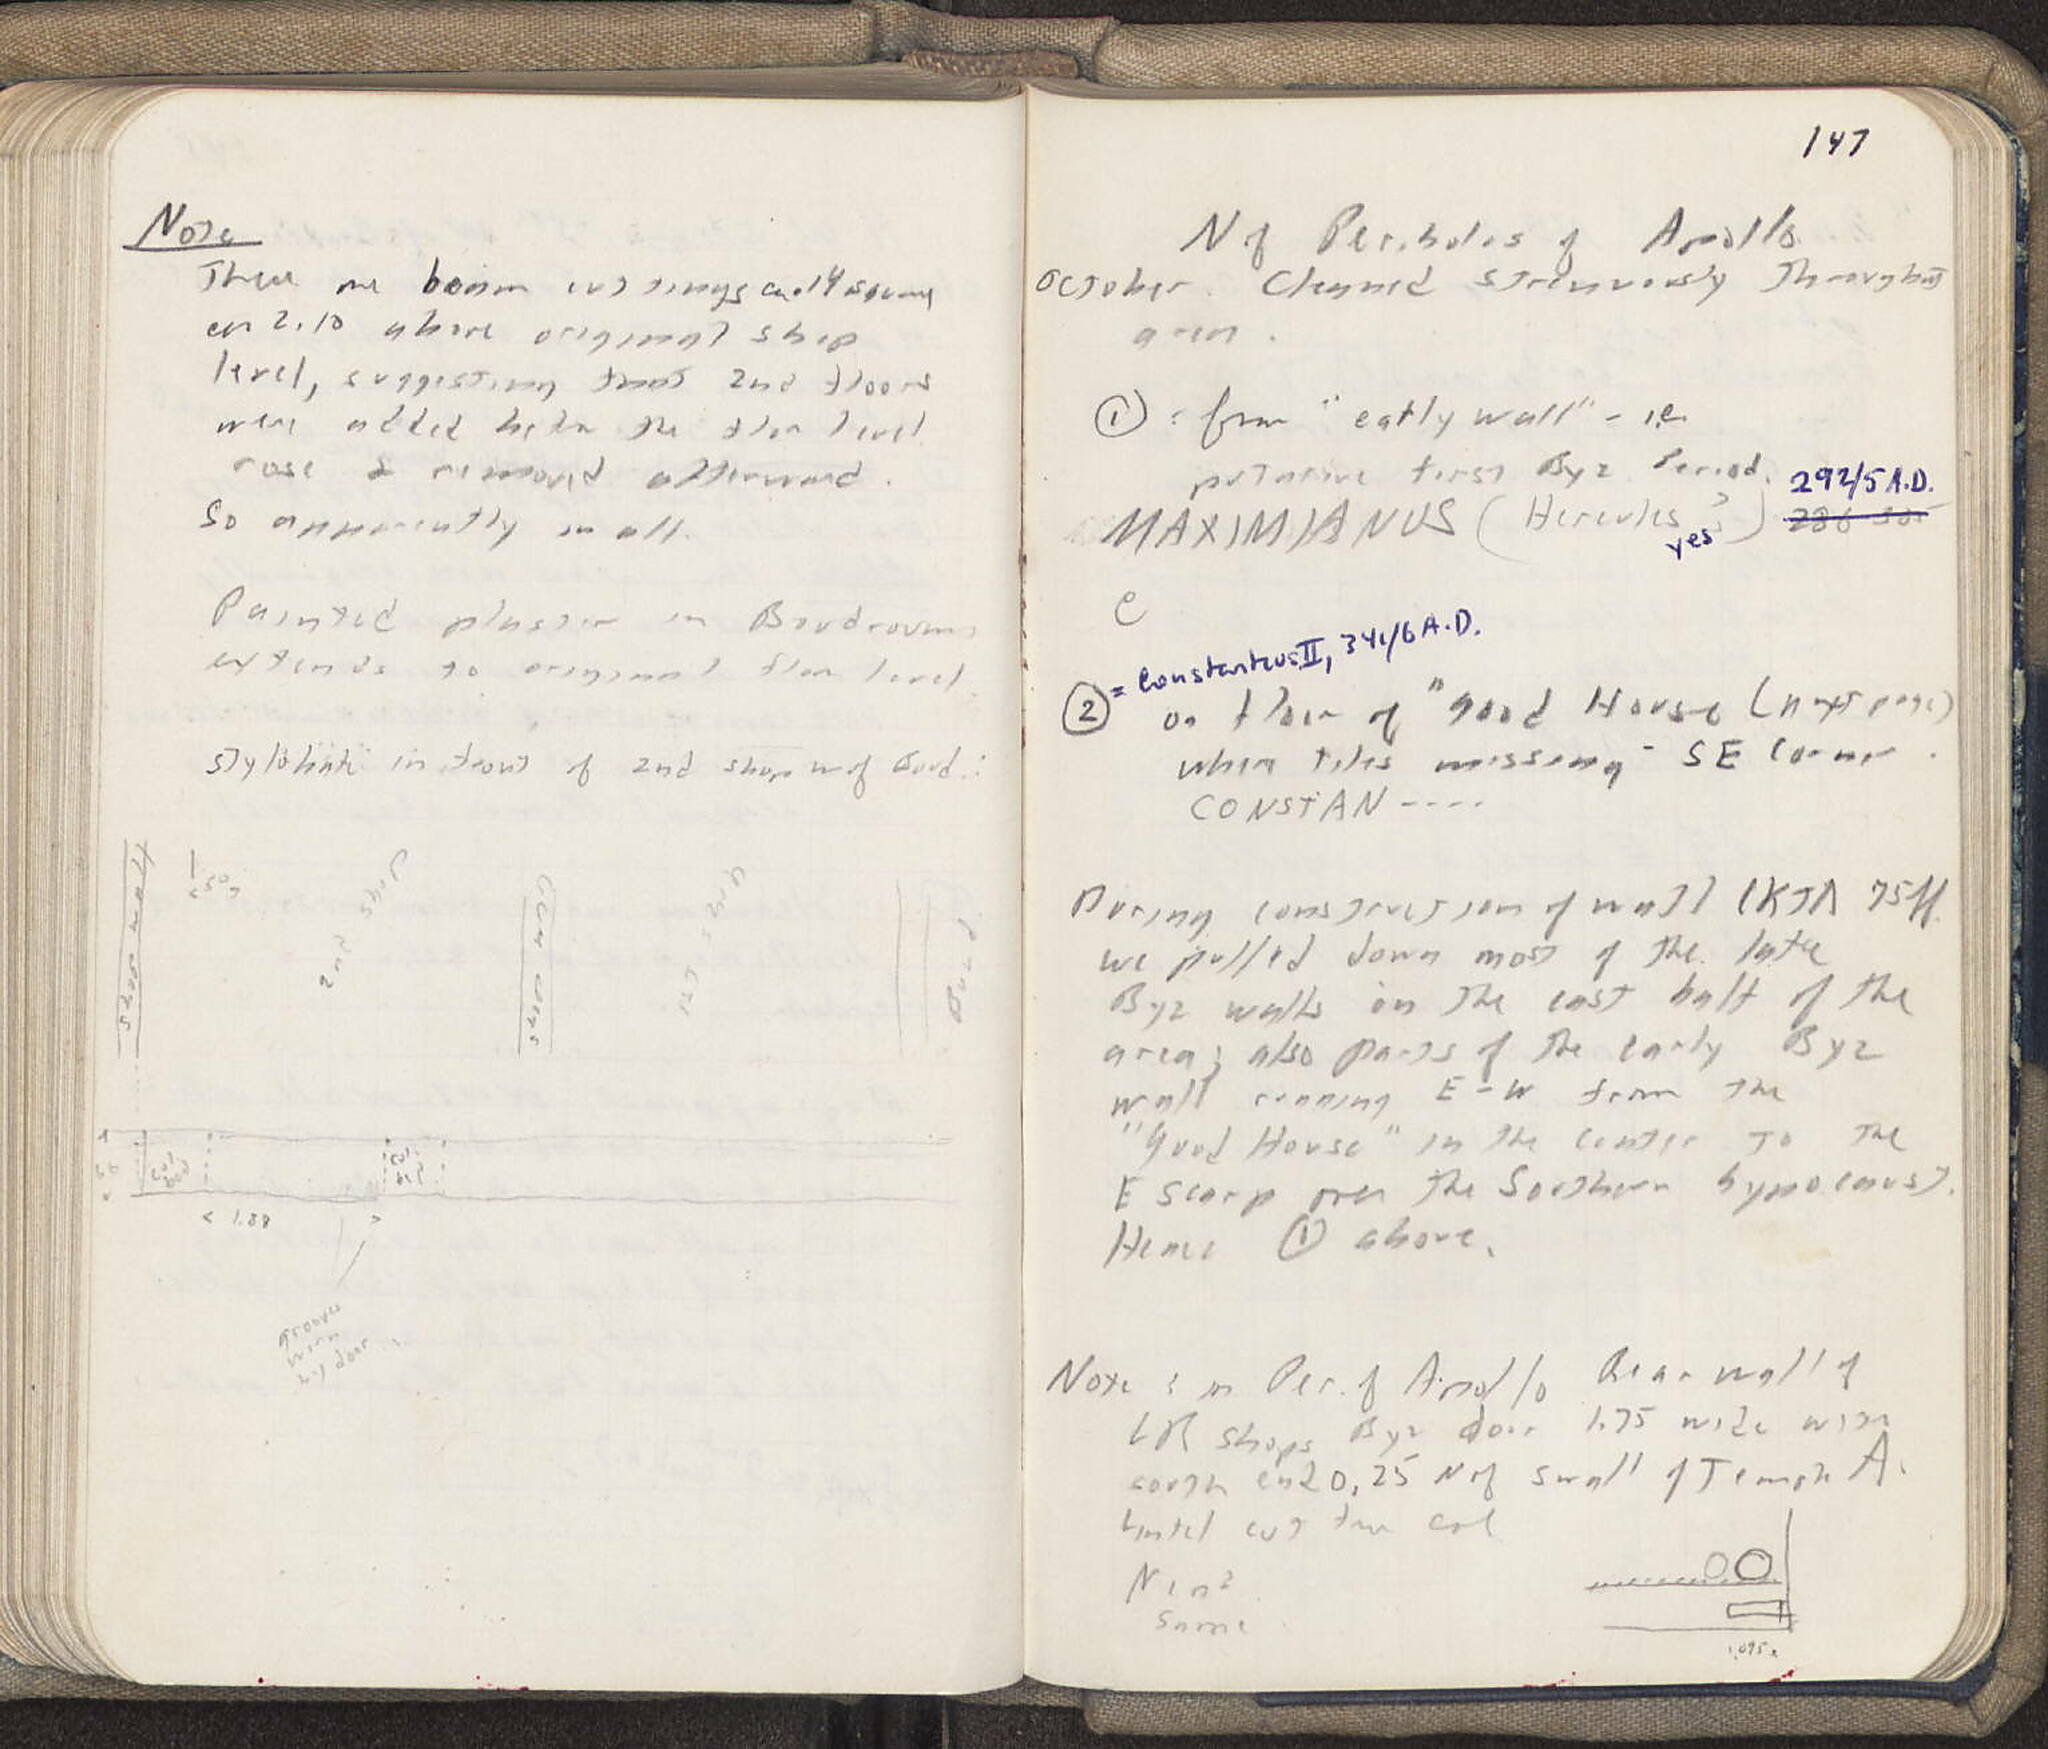 Note
There are beam cuttings ca .14 square
ca 2.10 above original shop
level, suggesting that 2nd floors
were added before the floor level
rose & removed afterward.
So apparently in all.
Painted plaster in Boudroumi
extends to original floor level.
Stylobate in front of 2nd shop w of Boud.:
from edges
.50
2nd shop
cem edges
1st shop
Boud
.66
cut
bed
cut
bed
< 1.88 >
grooves
with
door
147
N of Peribolos of Apollo
October. Cleaned strenuously throughout
area.
① : from "early wall" – i.e.
putative first Byz Period.
MAXIMIANUS (Hercules ?) 292/5 A.D.
yes 286-305
C
= Constantius II, 341/6 A.D.
② on floor of "Good House (next page)
when tiles missing – SE Corner.
CONSTAN ----
During construction of wall (KTΛ 75ff.
we pulled down most of the late
Byz walls in the east half of the
area; also parts of the early Byz
wall running E-W from the
"Good House" in the center to the
E scarp over the Southern hypocaust.
Hence ① above.
Note : in Per. of Apollo Rear wall of
LR shops Byz door 1.75 wide with
south end 0,25 N of S wall of Temple A.
Lintel cut from col
N in 2
same
.095